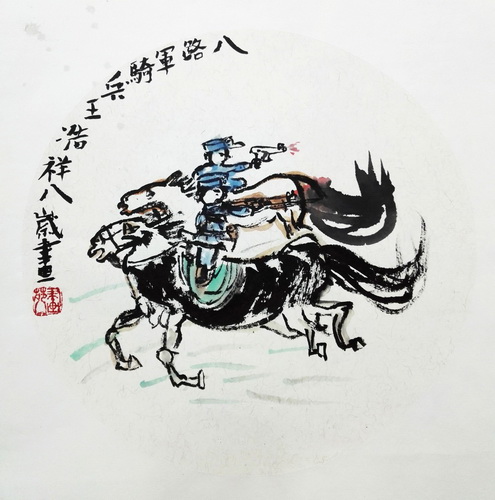 八路軍騎兵王浩祥八歲畫